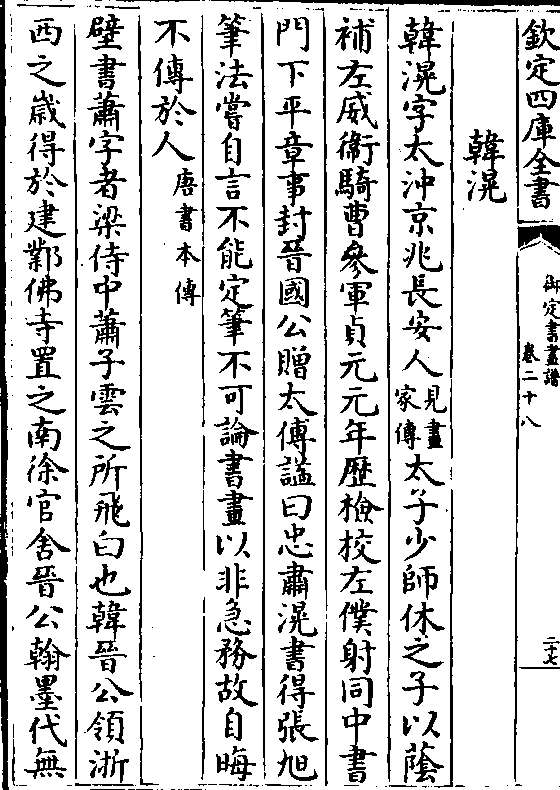 欽定四庫全書
御定書畫譜
卷二十八
二十七
韓滉
韓滉字太沖京兆長安人見畫家傳太子少師休之子以蔭
補左威衛騎曹參軍貞元元年歴檢校左僕射同中書
門下平章事封晉國公贈太傅諡曰忠肅滉書得張旭
筆法嘗自言不能定筆不可論書畫以非急務故自晦
不傳於人唐書本傳
壁書蕭字者梁侍中蕭子雲之所飛白也韓晉公領浙
西之歲得於建鄴佛寺置之南徐官舍晉公翰墨代無